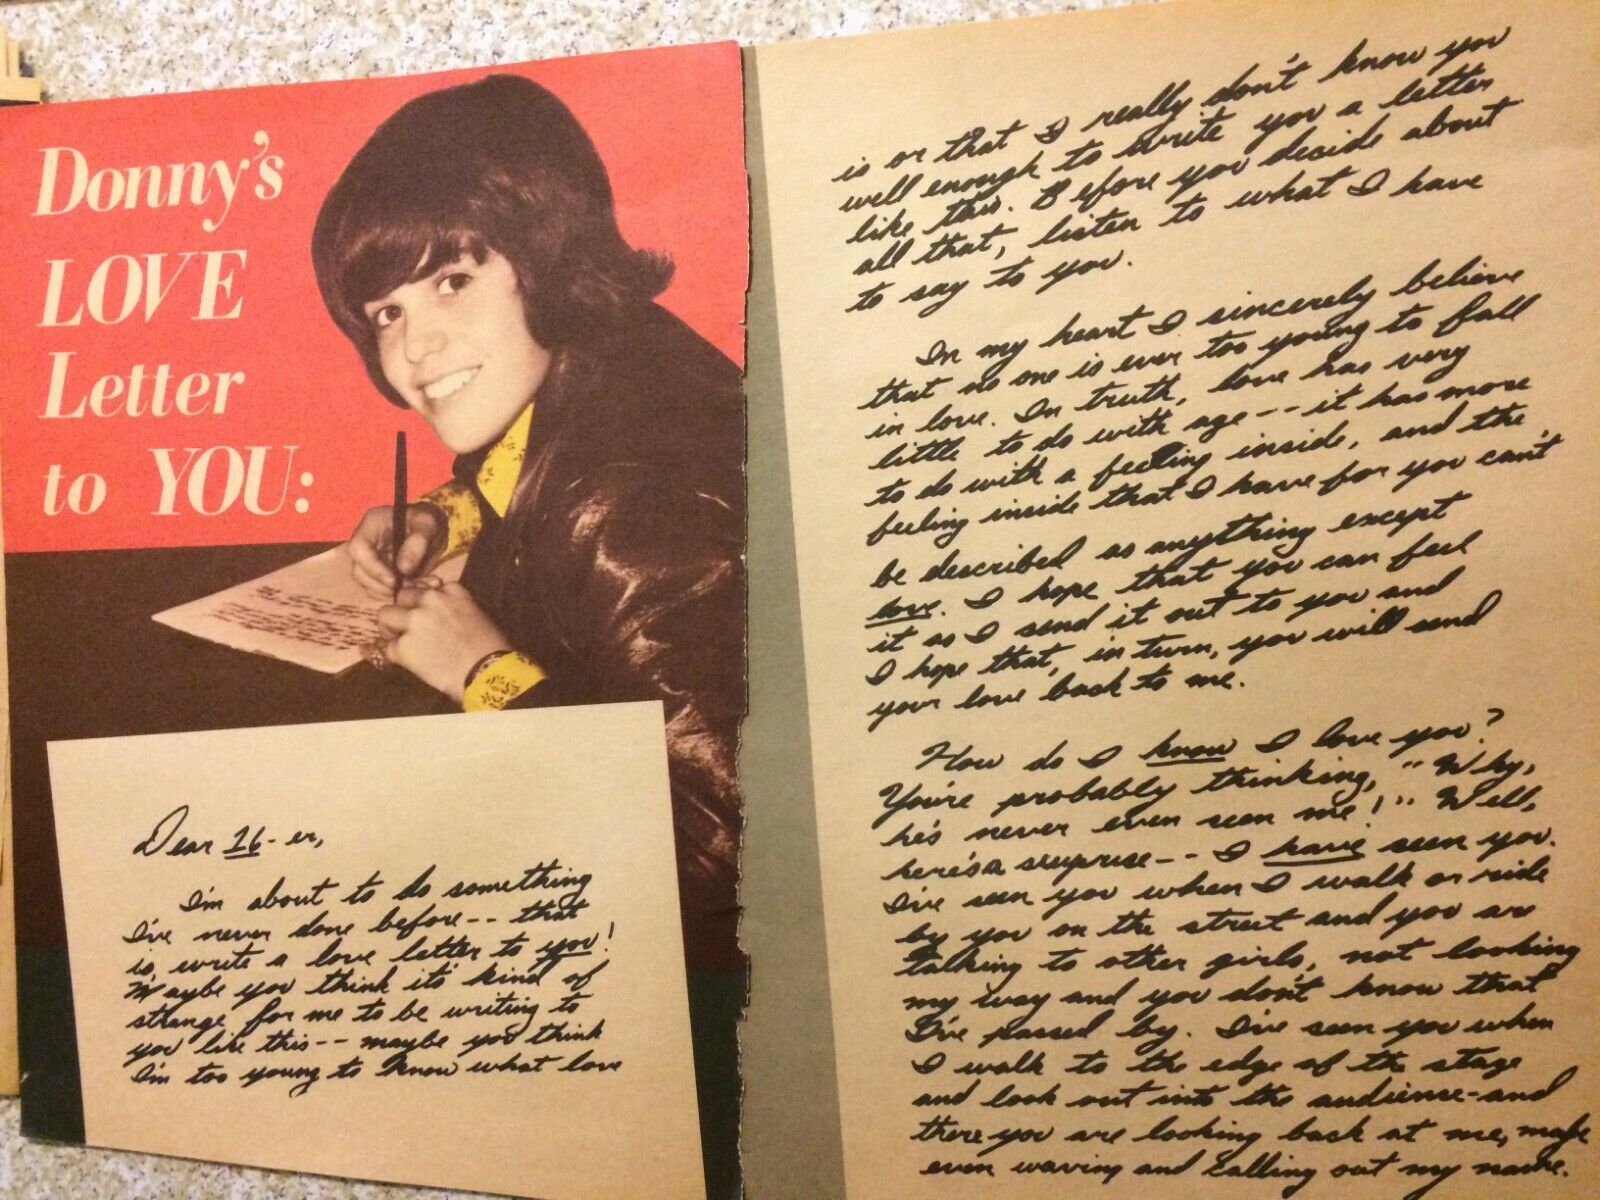 Donny's
LOVE
Letter
to YOU:
Dear 16-er,
I'm about to do something
I've never done before-- that
is, write a love letter to you!
Maybe you think it's kind of
strange for me to be writing to
you like this-- maybe you think
I'm too young to know what love
is or that I really don't know you
well enough to write you a letter
like this. Before you decide about
all that, listen to what I have
to say to you.
In my heart I sincerely believe
that no one is ever too young to fall
in love. In truth, love has very
little to do with age-- it has more
to do with a feeling inside, and the
feeling inside that I have for you can't
be described as anything except
love. I hope that you can feel
it as I send it out to you and
I hope that, in turn, you will send
your love back to me.
How do I know I love you?
You're probably thinking, "Why,
he's never even seen me!" Well,
here's a surprise-- I have seen you.
I've seen you when I walk or ride
by you on the street and you are
talking to other girls, not looking
my way and you don't know that
I've passed by. I've seen you when
I walk to the edge of the stage
and look out into the audience-and
there you are looking back at me, maybe
even waving and calling out my name.